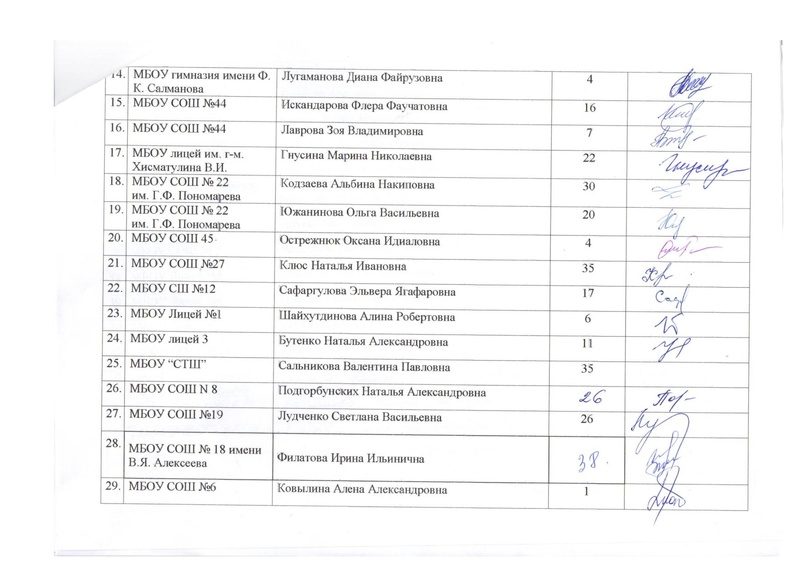 14. МБОУ гимназия имени Ф. Лугаманова Диана Файрузовна 4
К. Салманова
15. МБОУ СОШ №44 Искандарова Флера Фаучатовна 16
16. МБОУ СОШ №44 Лаврова Зоя Владимировна 7
17. МБОУ лицей им. г-м. Гнусина Марина Николаевна 22
Хисматулина В.И.
18. МБОУ СОШ № 22 Кодзаева Альбина Накиповна 30
им. Г.Ф. Пономарева
19. МБОУ СОШ № 22 Южанинова Ольга Васильевна 20
им. Г.Ф. Пономарева
20. МБОУ СОШ 45 Острежнюк Оксана Идиаловна 4
21. МБОУ СОШ №27 Клюс Наталья Ивановна 35
22. МБОУ СШ №12 Сафаргулова Эльвера Ягафаровна 17
23. МБОУ Лицей №1 Шайхутдинова Алина Робертовна 6
24. МБОУ лицей 3 Бутенко Наталья Александровна 11
25. МБОУ “СТШ” Сальникова Валентина Павловна 35
26. МБОУ СОШ N 8 Подгорбунских Наталья Александровна 26
27. МБОУ СОШ №19 Лудченко Светлана Васильевна 26
28. МБОУ СОШ № 18 имени Филатова Ирина Ильинична 38
В.Я. Алексеева
29. МБОУ СОШ №6 Ковылина Алена Александровна 1